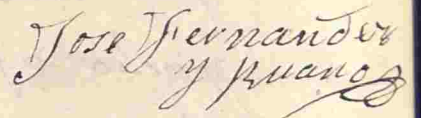 Jose Fernandez
y Ruano